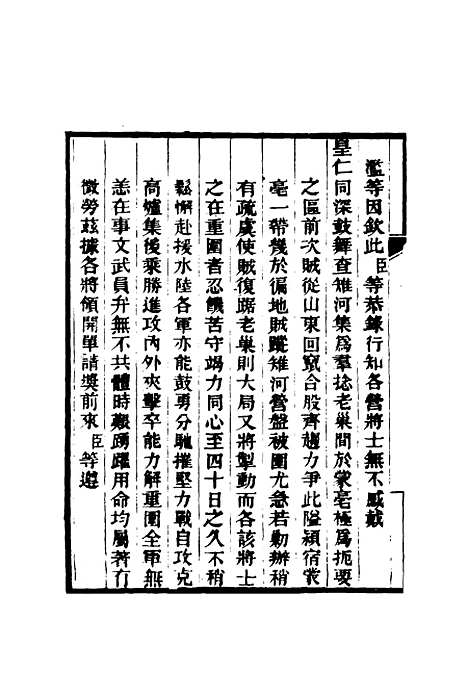 濫等因欽此臣等恭錄行知各營將士無不感戴
皇仁同深鼓舞查雉河集爲羣捻老巢間於蒙亳極爲扼要
之區前次賊從山東回竄合股齊趨力爭此隘潁宿蒙
亳一帶幾於徧地賊蹤雉河營盤被圍尤急若勦辦稍
有疏虞使賊復踞老巢則大局又將掣動而各該將士
之在重圍者忍饑苦守竭力同心至四十日之久不稍
鬆懈赴援水陸各軍亦能鼓勇分馳摧堅力戰自攻克
高爐集後乘勝進攻內外夾擊卒能力解重圍全軍無
恙在事文武員弁無不共體時艱踴躍用命均屬著有
微勞茲據各將領開單請獎前來臣等遵